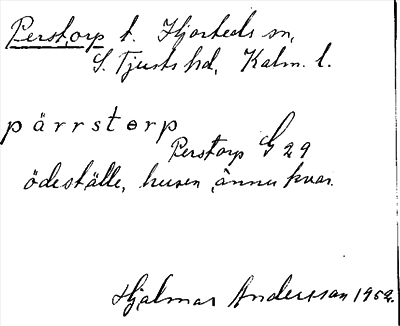 Perstorp t. Hjorteds sn,
S. Tjusts hd, Kalm. l.
pärrstorp
Perstorp G 29
ödeställe, husen ännu kvar.
Hjalmar Andersson 1952.